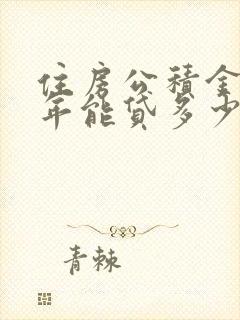 住房公积金
年能贷多少
青棘